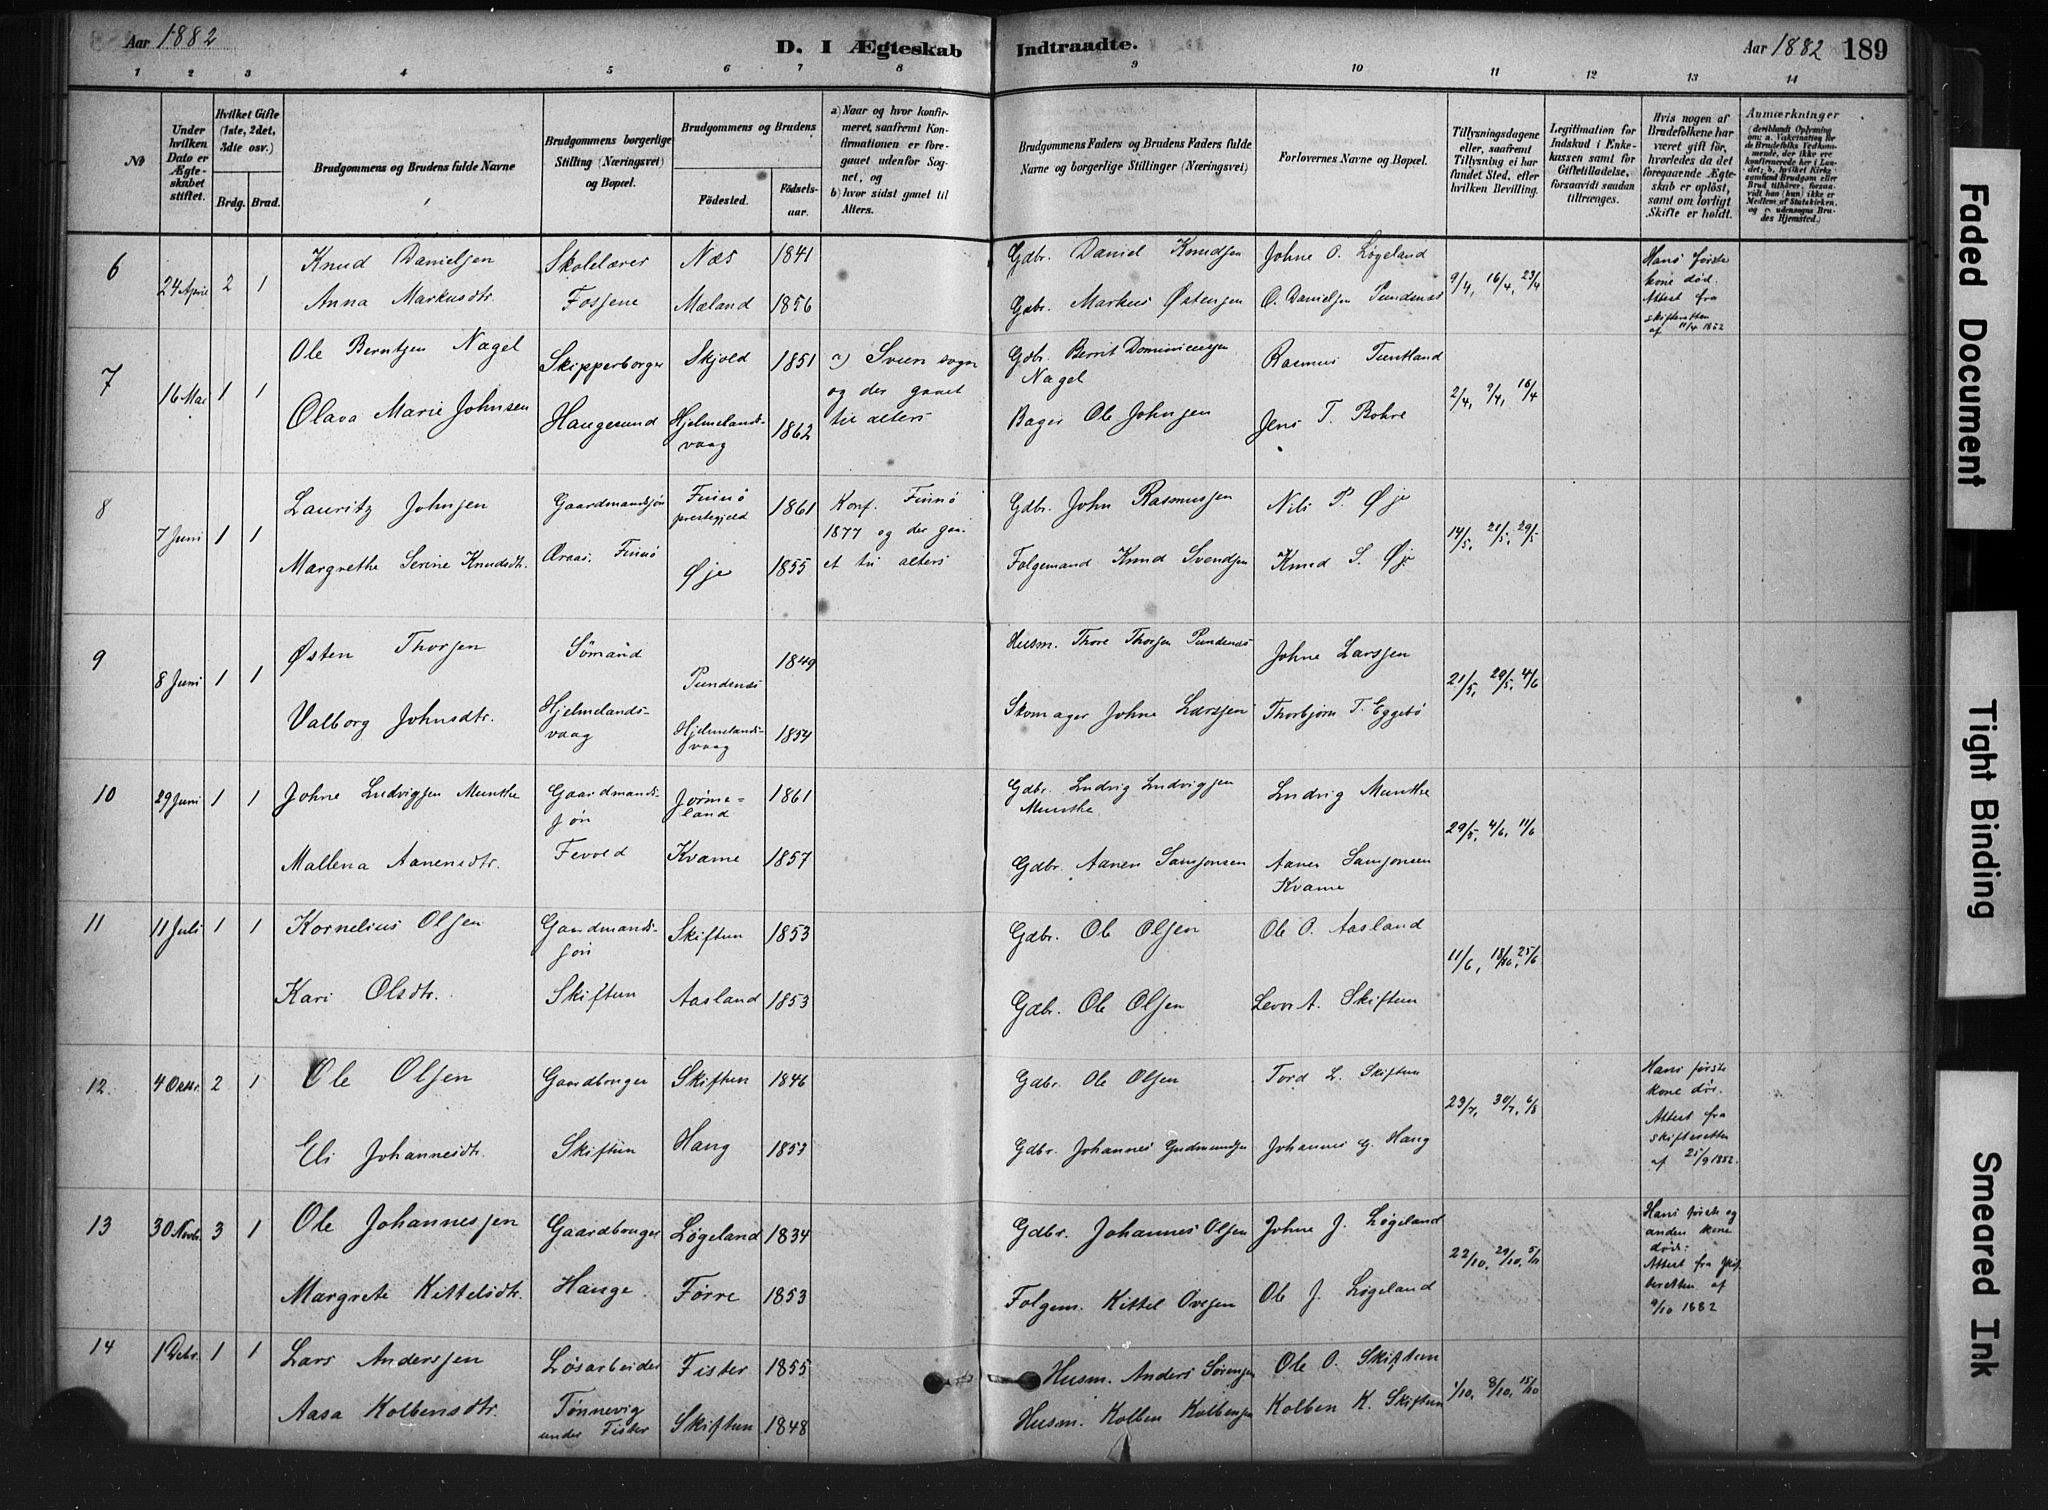 Aar 1882
D. I Ægteskab Indtraadte.
Aar 1882 189
1 2 3 4 5 6 7 8 9 10 11 12 13 14
No
Under hvilken Dato er Ægteskabet stiftet.
Hvilket Gifte (1ste, 2det, 3dte osv.)
Brdg. Brud.
Brudgommens og Brudens fulde Navne
Brudgommens borgerlige Stilling (Næringsvei) og Bopæl.
Brudgommens og Brudens
Fødested.
Fødselsaar.
a) Naar og hvor konfirmeret, saafremt Konfirmationen er foregaaet udenfor Sognet, og
b) hvor sidst gaaet til Alters.
Brudgommens Faders og Brudens Faders fulde Navne og borgerlige Stillinger (Næringsvei)
Forlovernes Navne og Bopæl.
Tillysningsdagene eller, saafremt Tillysning ei har fundet Sted, efter hvilken Bevilling.
Legitimation for Indskud i Enkekassen samt for Giftetilladelse, forsaavidt saadan tiltrænges.
Hvis nogen af Brudefolkene har været gift før, hvorledes da det foregaaende Ægteskab er opløst, samt om lovligt Skifte er holdt.
Anmærkninger
(deriblandt Oplysning om: a. Vakcination for de Brudefolks Vedkommende, der ikke ere konfirmerede her i Landet; b. hvilket Kirkesamfund Brudgom eller Brud tilhører, forsaavidt han (hun) ikke er Medlem af Statskirken, og c. udensogns Brudes Hjemsted.
6 24 April 2 1 Knud Danielsen Skolelærer Næs 1841 Gdbr. Daniel Knudsen Johne O. Løgeland 9/4, 16/4, 23/4 Hans første kone død. Attest fra skifteretten af 11/4 1882
Anna Markusdtr. Fosjene Mæland 1856 Gdbr. Markus Østensen O. Danielsen Pundenæs
7 16 Mai 1 1 Ole Berntsen Nagel Skipperborger Skjold 1851 a) Svien sogn og der gaaet til alters Gdbr. Bernt Dominicusen Nagel Rasmus Tuntland 2/4, 9/4, 16/4
Olava Marie Johnsen Haugesund Hjelmelandsvaag 1862 Bager Ole Johnsen Jens T. Bohre
8 7 Juni 1 1 Lauritz Johnsen Gaardmandssøn Finnø prestegjeld 1861 Konf. Finnø 1877 og der gaaet til alters Gdbr. John Rasmussen Nils P. Øje 14/5, 21/5, 29/5
Margrethe Serine Knudsdtr. Araas, Finnø Øje 1855 Folgemand Knud Svendsen Knud S. Øje
9 8 Juni 1 1 Østen Thorsen Sømand Pundenæs 1849 Husm. Thore Thorsen Pundenæs Johne Larssen 21/5, 29/5, 4/6
Valborg Johnsdtr. Hjelmelandsvaag Hjelmelandsvaag 1854 Skomager Johne Larssen Thorbjørn T. Eggebø
10 29 Juni 1 1 Johne Ludvigsen Munthe Gaardmandssøn Jørmeland 1861 Gdbr. Ludvig Ludvigsen Munthe Ludvig Munthe 29/5, 4/6, 11/6
Mallena Aanensdtr. Fevold Kvame 1857 Gdbr. Aanen Samsonsen Aanen Samsonsen Kvame
11 11 Juli 1 1 Kornelius Olsen Gaardmandssøn Skiftun 1853 Gdbr. Ole Olsen Ole O. Aasland 11/6, 18/6, 25/6
Kari Olsdtr. Skiftun Aasland 1853 Gdbr. Ole Olsen Levor A. Skiftun
12 4 Oktr. 2 1 Ole Olsen Gaardbruger Skiftun 1846 Gdbr. Ole Olsen Tord L. Skiftun 23/7, 30/7, 6/8 Hans første kone død. Attest fra skifteretten af 25/9 1882.
Eli Johannesdtr. Skiftun Haug 1853 Gdbr. Johannes Gudmundsen Johannes G. Haug
13 30 Novbr. 3 1 Ole Johannessen Gaardbruger Løgeland 1834 Gdbr. Johannes Olsen Johne J. Løgeland 22/10, 29/10, 5/11 Hans første og anden kone død. Attest fra skifteretten af 9/10 1882
Margrete Kittelsdtr. Hauge. Førre 1853 Folgem. Kittel Ovesen Ole J. Løgeland
14 1 Debr. 1 1 Lars Anderssen Løsarbeider Fister 1855 Husm. Anders Sørensen Ole O. Skiftun 1/10, 8/10, 15/10
Aasa Kolbensdtr. Tønnevig under Fister Skiftun 1848 Husm. Kolben Kolbensen Kolben K. Skiftun
Faded Document
Tight Binding
Smeared Ink